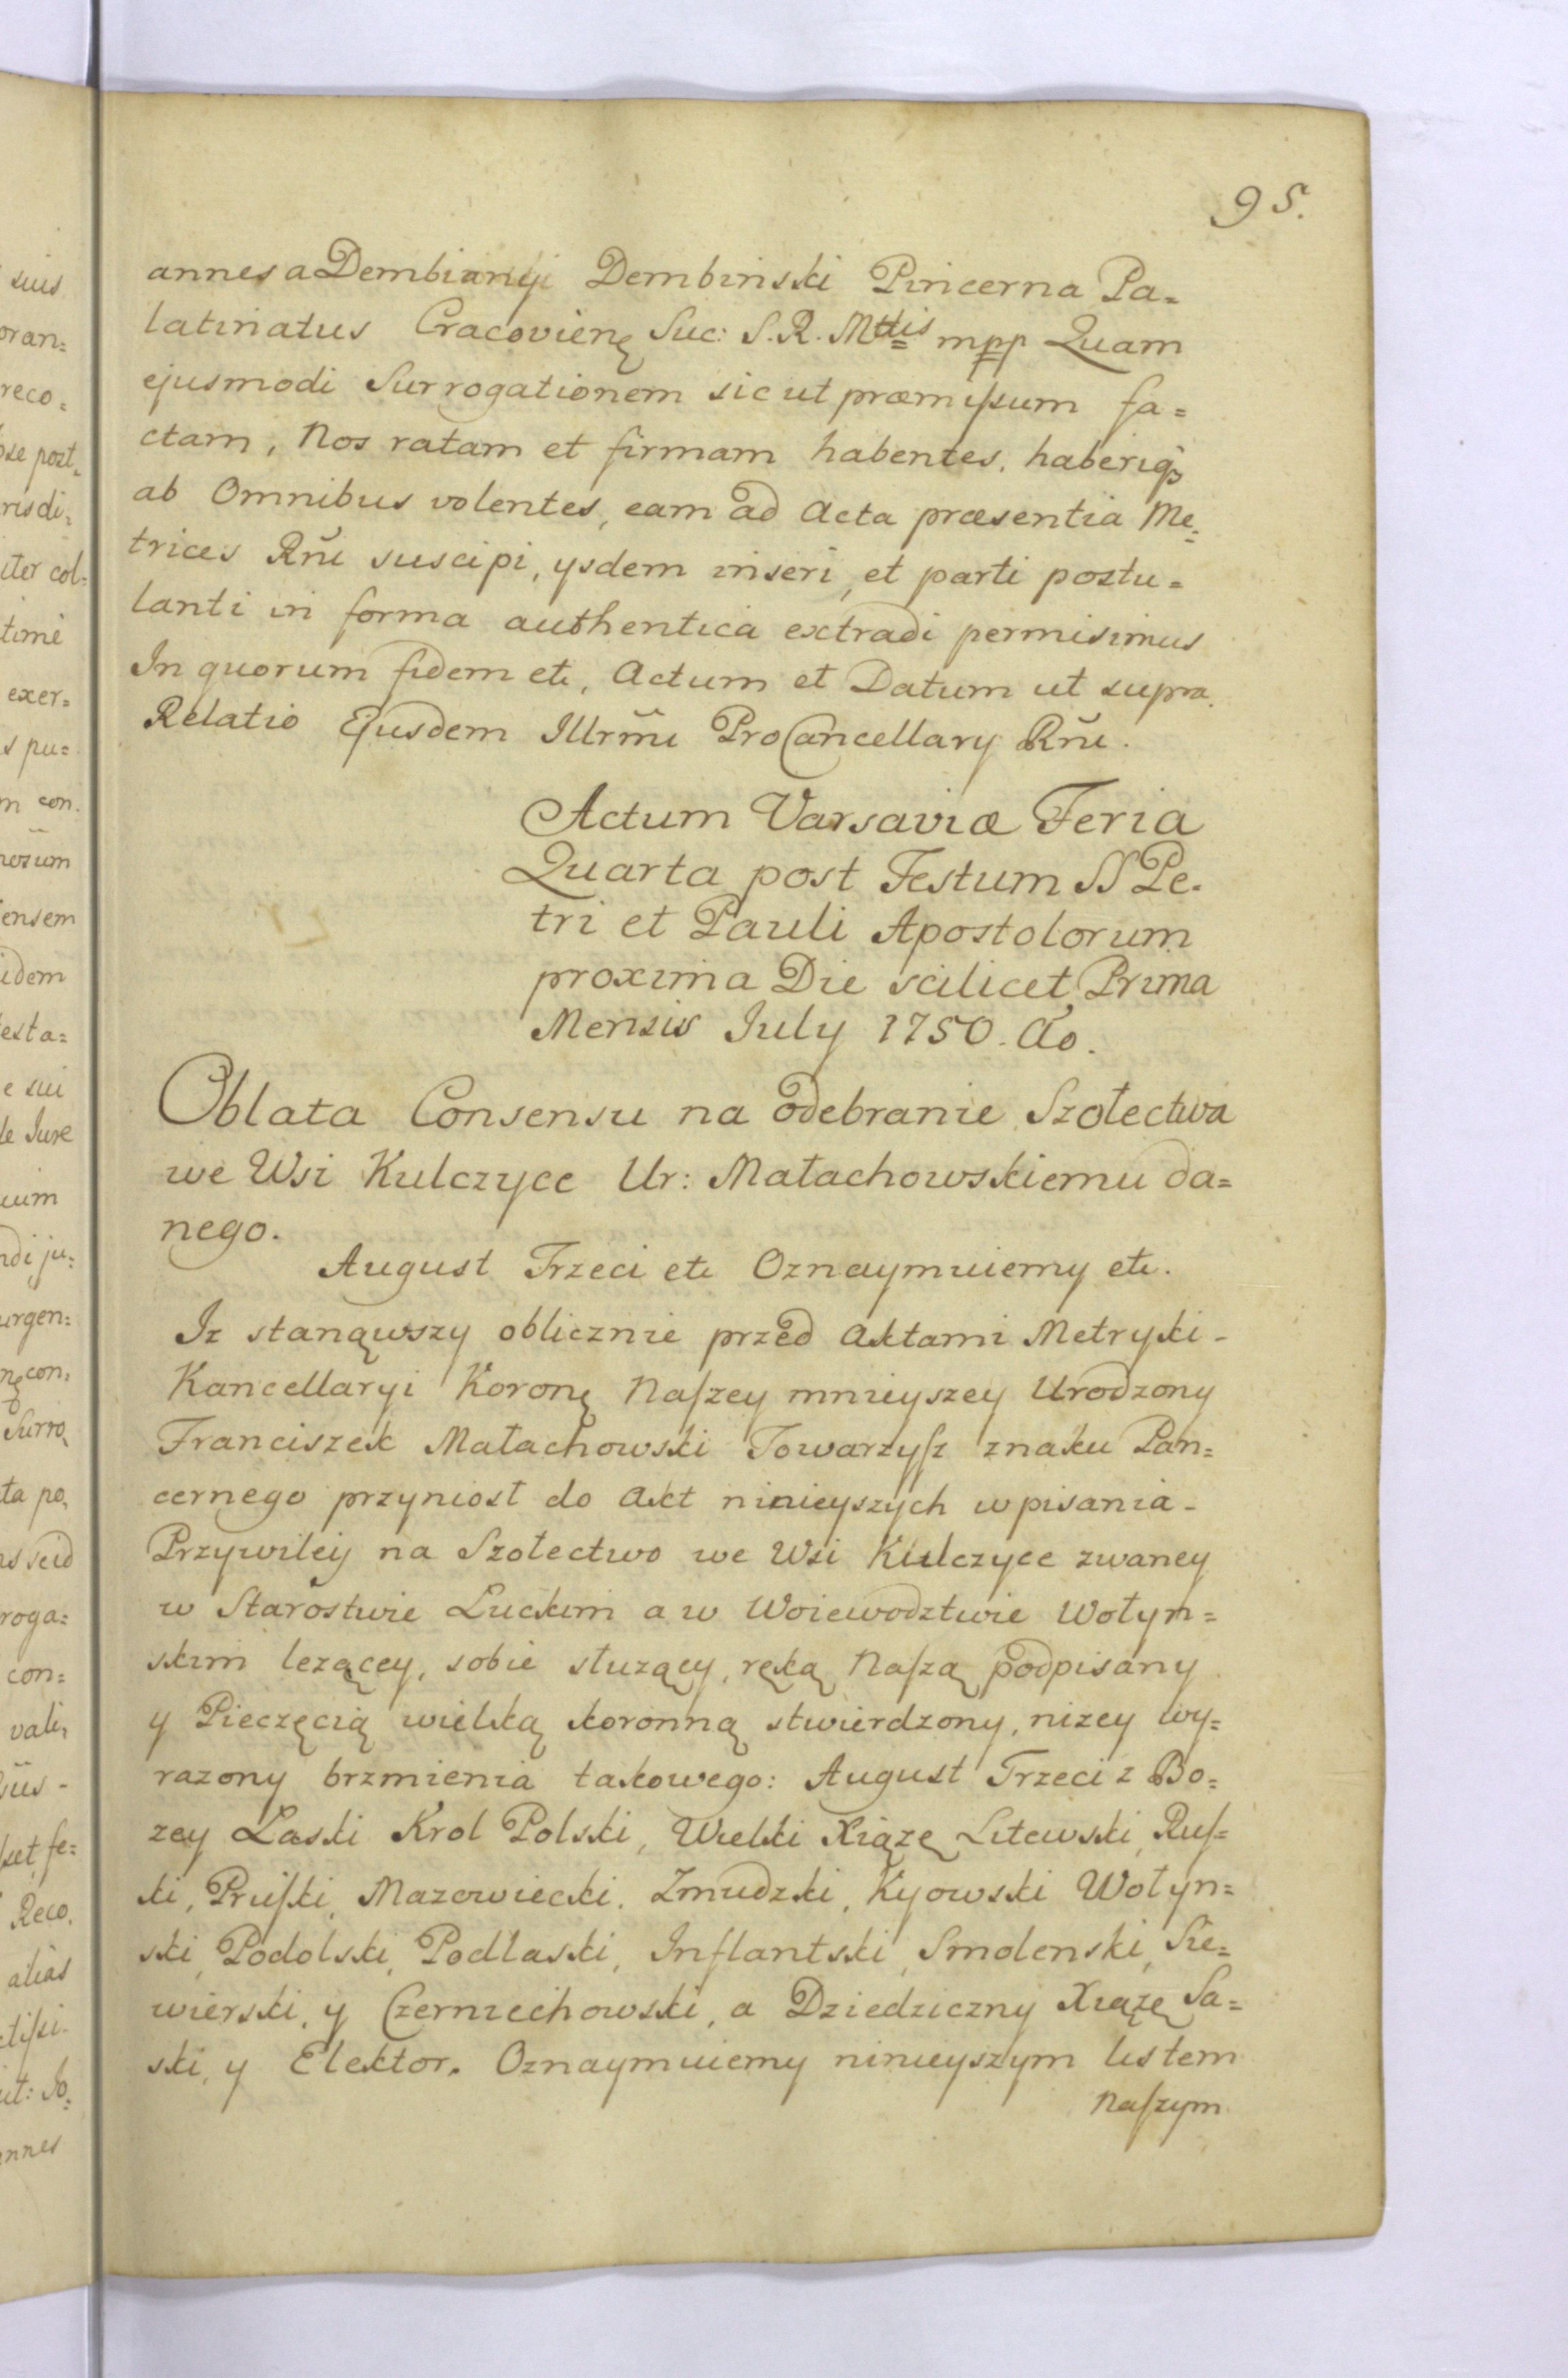 95.
annes a Dembiany Dembinski Pincerna Pa=
latinatus Cracovienę Suc: S. R. Mttis mpp Quam
ejusmodi Surrogationem sic ut præmiſsum fa=
ctam, Nos ratam et firmam habentes, haberiq3
ab Omnibus volentes, eam ad Acta præsentia Me=
trices Rñi suscipi, ysdem inseri, et parti postu=
lanti in forma authentica extradi permisimus
In quorum fidem etc, Actum et Datum ut supra.
Relatio Ejusdem Illrm̃i ProCancellary Rñi.
Actum Varsaviæ Feria
Quarta post Festum SS Pe=
tri et Pauli Apostolorum
proxima Die scilicet Prima
Mensis July 1750. Ao.
Oblata Consensu na odebranie Szołectwa
we Wsi Kulczyce Ur: Małachowskiemu da=
nego.
August Trzeci etc Oznaymuiemy etc.
Iz stanąwszy oblicznie przed Aktami Metryki -
Kancellaryi Koronę Naſzey mnieyszey Urodzony
Franciszek Małachowski Towarzyſz znaku Pan=
cernego przyniosł do Akt ninieyszych wpisania -
Przywiley na Szołectwo we Wsi Kulczyce zwaney
w Starostwie Luckim a w Woiewodztwie Wołyn=
skim lezącey, sobie słuzący, ręką Naſzą podpisany
y Pieczęcią wielką koronną stwierdzony, nizey wy=
razony brzmienia takowego: August Trzeci z Bo=
zey Łaski Krol Polski, Wielki Xiąze Litewski, Ruſ=
ki, Pruſki, Mazowiecki, Zmudzki, Kyowski Wołyn=
ski, Podolski, Podlaski, Inflantski, Smolenski, Sie=
wierski, y Czerniechowski, a Dziedziczny Xiązę Sa=
ski, y Elektor. Oznaymuiemy ninieyszym listem
Naſzym